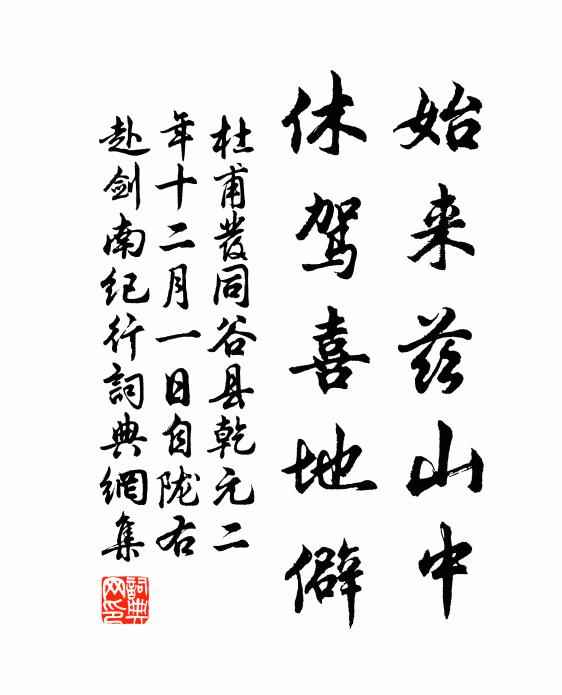 始来兹山中
休驾喜地僻
杜甫發同谷县乾元二
年十二月一日自陇右
赴剑南纪行詞典網集
詞典网印